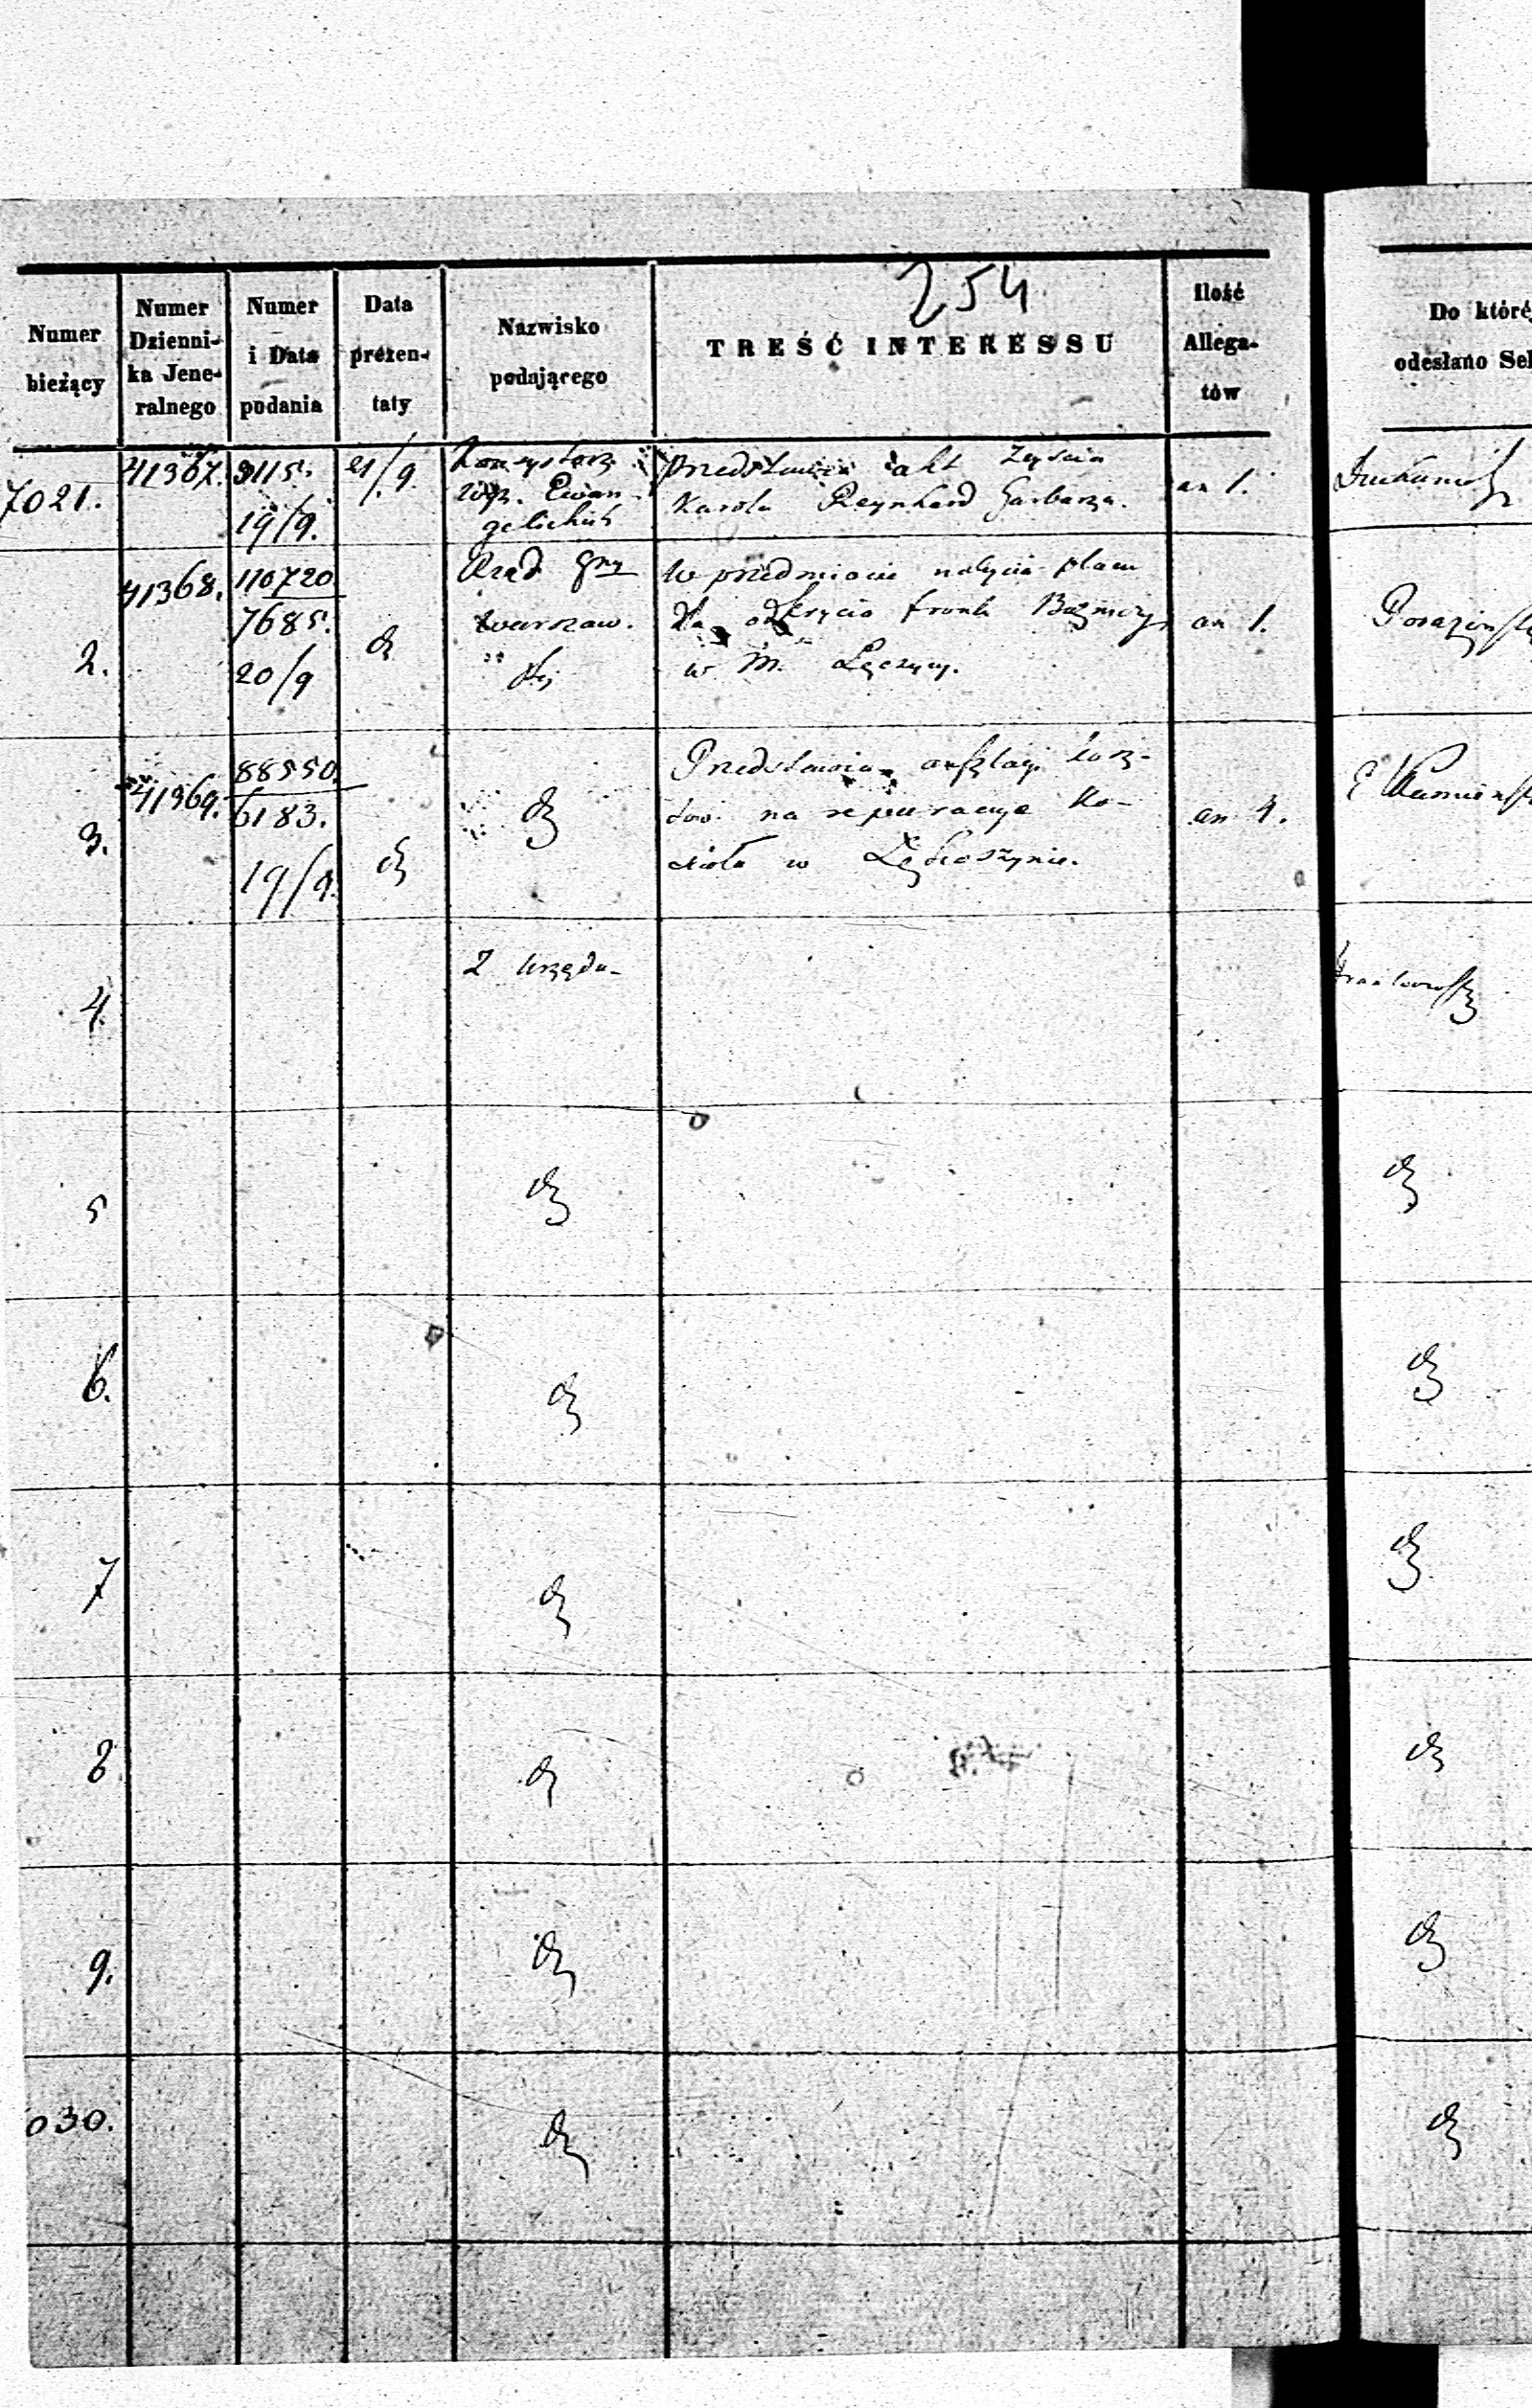 254
Numer bieżący
Numer Dzienni-ka Jene-ralnego
Numer i Data podania
Data prezen-taty
Nazwisko podającego
TREŚĆ INTERESSU
Ilość Allega-tów
Do któré
odesłano Se
7021.
41367.
9115.
19/9.
21/9.
Konsystorz
Wyz. Ewan-
gelickich
Przedstawia akt Zejścia
Karola Reynhard Garbarza.
an 1.
2.
41368.
110720
7685.
20/9
Rząd Gny
warszaw.
ski
W przedmiocie nabycia placu
dla odkrycia frontu Bożnicy
w M. Łęczycy.
an 1.
3.
41369.
88550.
6183.
19/9.
Przedstawia anszlagi kosz-
tów na reparacye Ko-
ścioła w
an 4.
4.
Z Urzędu
5
6.
7
8
9.
030.